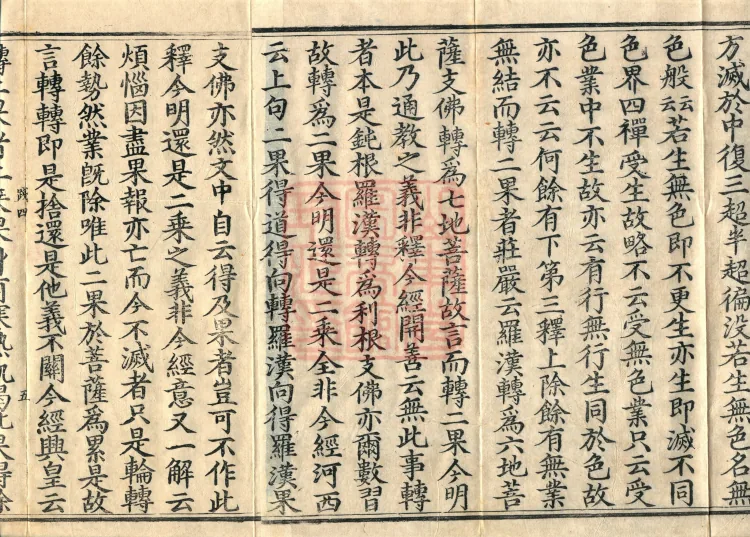 方滅於中復三超半超徧没若生無色名無
色般云云若生無色即不更生亦生即滅不同
色界四禪受生故略不云受無色業只云受
色業中不生故亦云有行無行生同於色故
亦不云云何餘有下第三釋上除餘有無業
無結而轉二果者莊嚴云羅漢轉爲六地菩
薩支佛轉爲七地菩薩故言而轉二果今明
此乃通教之義非釋今經開善云無此事轉
者本是鈍根羅漢轉爲利根支佛亦爾數習
故轉爲二果今明還是二乘全非今經河西
云上句二果得道得向轉羅漢向得羅漢果
支佛亦然文中自云得及果者豈可不作此
釋今明還是二乘之義非今經意又一解云
煩惱因盡果報亦亡而今不滅者只是輪轉
餘勢然業旣除唯此二果於菩薩爲累是故
言轉轉即是捨還是他義不關今經興皇云
踐四
五